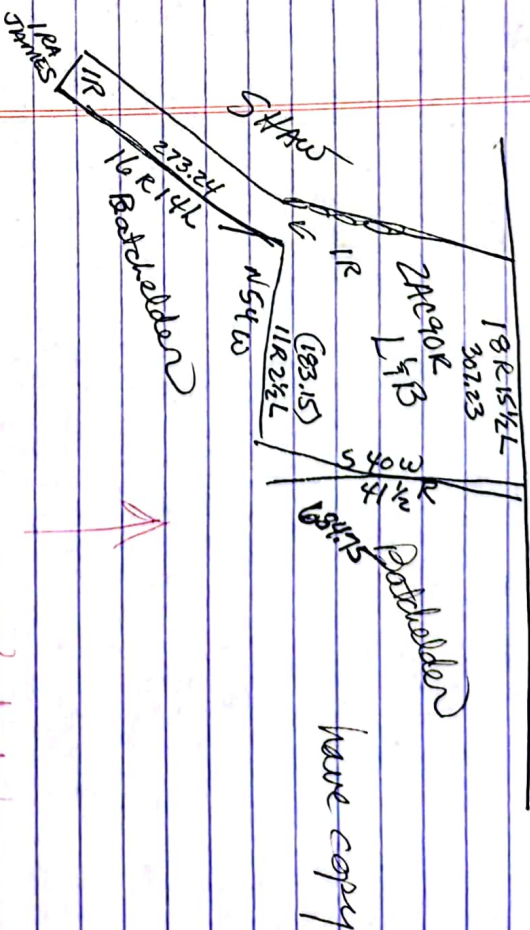 IRA
JAMES
1R
SHAW
273.24
16 R 14 L
Batchelder
1R
N54W
11R 2½ L
(183.15)
2AC90R
L9B
18 R 15½ L
307.23
S 40 W
41½ R
684.75
Batchelder
have copy